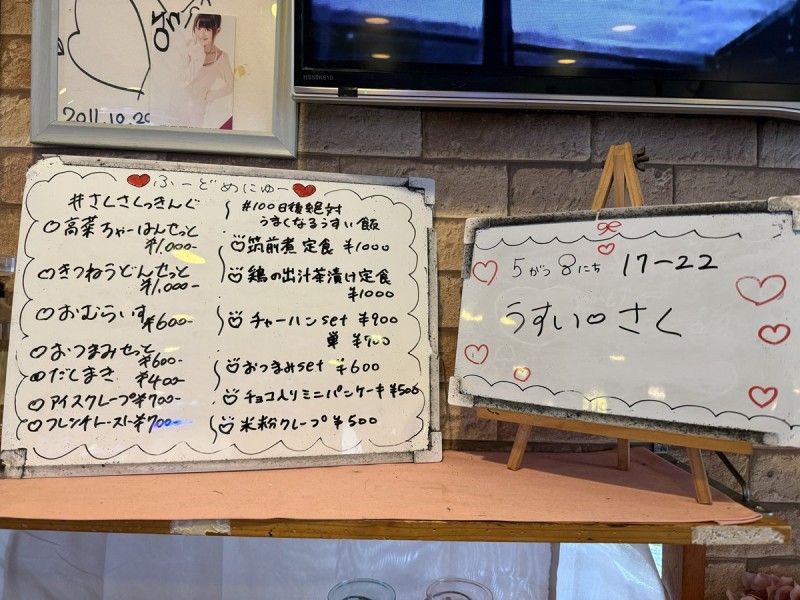 2011.10.20
ふーどめにゅー
#さくさくっきんぐ
高菜ちゃーはんせっと
¥1,000-
きつねうどんせっと
¥1,000-
おむらいす
¥600-
おつまみせっと
¥600-
だしまき ¥400-
アイスクレープ¥700-
フレンチトースト¥700-
#100日後絶対
うまくなるうすい飯
筑前煮定食 ¥1000
鶏の出汁茶漬け定食
¥1000
チャーハンset ¥900
単 ¥700
おつまみset ¥600
チョコ入りミニパンケーキ ¥500
米粉クレープ ¥500
5がつ8にち 17-22
うすい さく